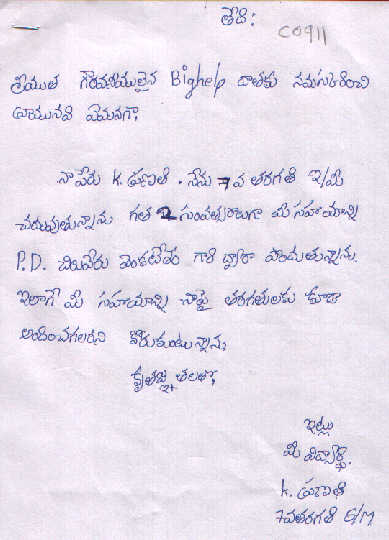 తేది:
C0911
శ్రీయుత గౌరవనీయులైన Bighelp దాతకు నమస్కరించి
వ్రాయునది ఏమనగా,
నా పేరు K. ప్రణతి. నేను 7వ తరగతి E/M
చదువుతున్నాను గత 2 సంవత్సరాలుగా మీ సహాయాన్ని
P.D. చిలివేరు వెంకటేశం గారి ద్వారా పొందుతున్నాను.
ఇలాగే మీ సహాయాన్ని నాపై తరగతులకు కూడా
అందించగలరని కోరుకుంటున్నాను.
కృతజ్ఞతలతో,
ఇట్లు
మీ విద్యార్థి.
K. ప్రణతి
7వతరగతి E/M